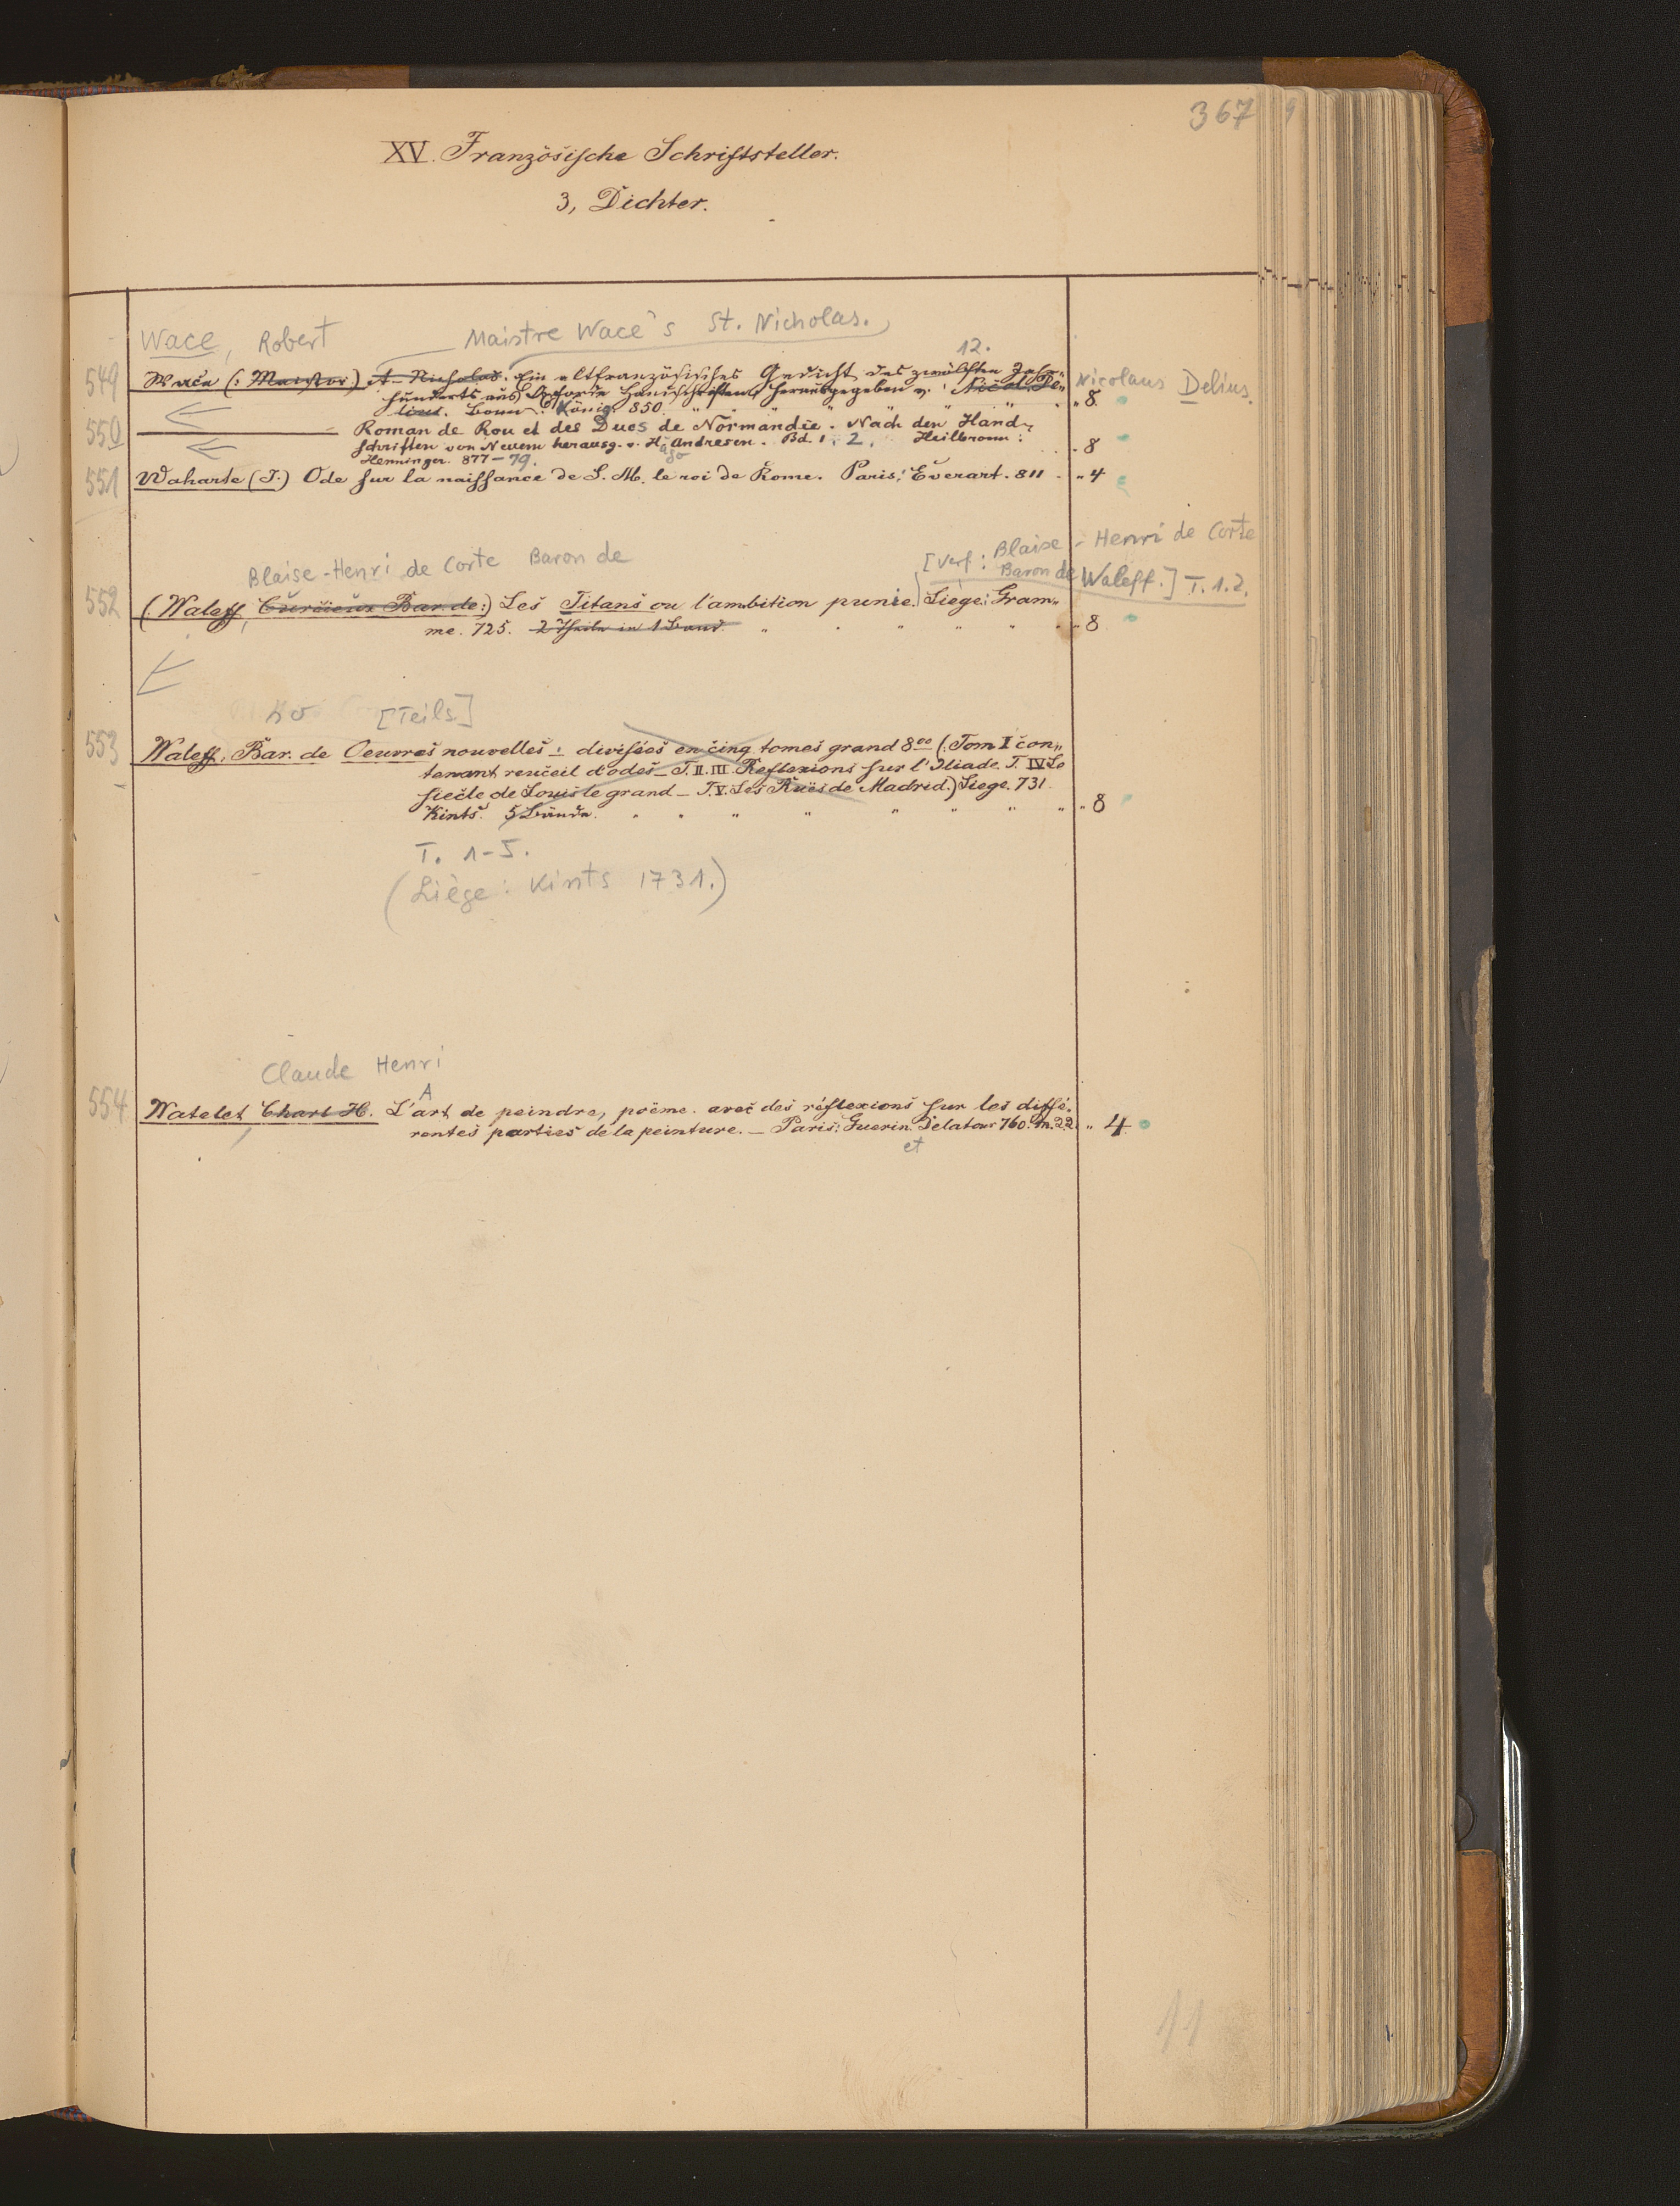 367
XV. Französische Schriftsteller.
3, Dichter.
Wace, Robert Maistre Wace's St. Nicholas.
12.
549 Wace (: Maistre) St. Nicholas. Ein altfranzösisches Gedicht des zwölften Jahr-
hunderts aus Oxforder Handschriften herausgegeben v. Nicol. De- Nicolaus Delius.
lius. Bonn: König. 850 " 8.
550 Roman de Rou et des Ducs de Normandie. Nach den Hand-
schriften von Neuem herausg. v. Hugo Andresen. Bd. 1. 2. Heilbronn:
Henninger. 877-79. " 8
551 Waharte (J.) Ode sur la naissance de S. M. le roi de Rome. Paris: Everart. 811 " 4
Blaise-Henri de Corte Baron de [Verf: Blaise-Henri de Corte
Baron de Waleff.] T. 1.2.
552 (Waleff, Bar. de:) Les Titans ou l'ambition punie.) Liège: Gram-
me. 725. 2 Theile in 1 Band. " 8
[Teils]
553 Waleff, Bar. de Oeuvres nouvelles: divisées en cinq tomes grand 8vo (: Tom I con-
tenant recueil d'odes - T. II. III. Reflexions sur l'Iliade. T. IV Le
siecle de Louis le grand - T. V. Les Rues de Madrid.) Liege. 731.
Kints. 5 Bände. " 8
T. 1-5.
(Liège: Kints 1731.)
Claude Henri
A
554 Watelet Charl H. L'art de peindre, poëme. avec des réflexions sur les diffé-
rentes parties de la peinture. - Paris: Guerin. Delatour 760. m. " 4
et
11